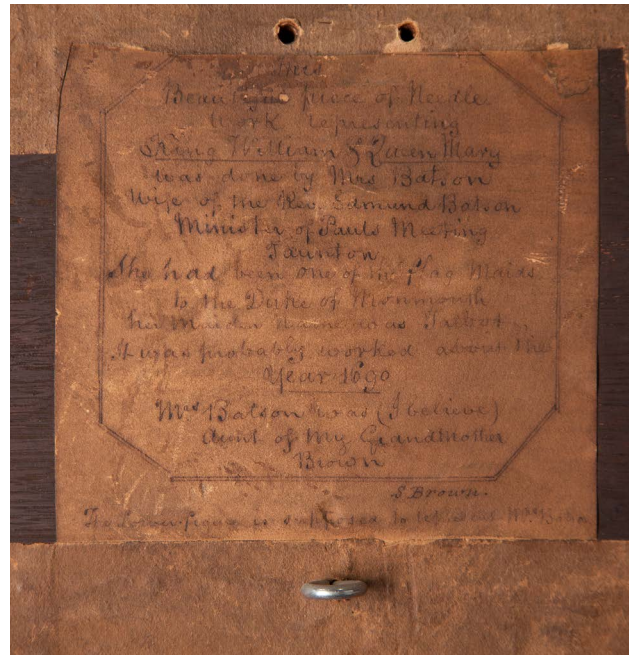 This
Beautiful piece of Needle
Work representing
King William & Queen Mary
was done by Mrs Batson
Wife of the Rev. Edmund Batson
Minister of Pauls Meeting
Taunton
She had been one of the flag Maids
to the Duke of Monmouth
her Maiden name was Talbot.
It was probably worked about the
Year 1690
Mrs Batson was (I believe)
Aunt of My Grandmother
Brown
S. Brown.
The Lower figure is supposed to represent Mrs. Batson